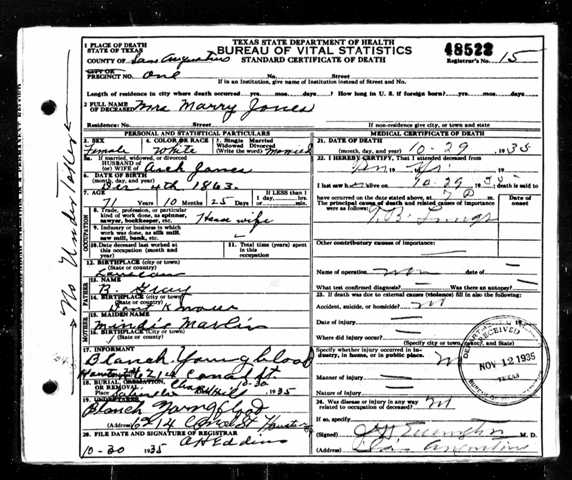 TEXAS STATE DEPARTMENT OF HEALTH
BUREAU OF VITAL STATISTICS
STANDARD CERTIFICATE OF DEATH
48522
Registrar's No. 15
1 PLACE OF DEATH
STATE OF TEXAS
COUNTY OF San Augustine
CITY OR
PRECINCT NO. one No. Street
If in an institution, give name of institution instead of Street and No.
Length of residence in city where death occurred yrs. mos. days? How long in U. S. if foreign born? yrs. mos. days.
2 FULL NAME
OF DECEASED Mrs Marry Jones
Residence: No. Street
If non-residence give city, or town and state
PERSONAL AND STATISTICAL PARTICULARS
3. SEX
Female
4. COLOR OR RACE
White
5. Single Married
Widowed Divorced
(Write the word) Married
5a. If married, widowed, or divorced
HUSBAND OF
(or) WIFE OF Arch Jones
6. DATE OF BIRTH
(month, day, and year) Dec 4th 1863
7. AGE
71 Years 10 Months 25 Days
If LESS than 1
day, hrs.
or min.
OCCUPATION
8. Trade, profession, or particular
kind of work done, as spinner,
sawyer, bookkeeper, etc. House wife
9. Industry or business in which
work was done, as silk mill,
saw mill, bank, etc.
10. Date deceased last worked at
this occupation (month and
year)
11. Total time (years) spent in
this occupation
12. BIRTHPLACE (city or town)
(State or country)
FATHER
13. NAME
14. BIRTHPLACE (city or town)
(State or country)
MOTHER
15. MAIDEN
NAME
16. BIRTHPLACE (city or town)
(State or country)
17. INFORMANT
Blanch Youngblood
18. BURIAL, CREMATION,
OR REMOVAL
Place 10-30 1935
19. UNDERTAKER
(Address)
20. FILE DATE AND SIGNATURE OF REGISTRAR
10-30 1935 Eddins
No Under Taker
MEDICAL CERTIFICATE OF DEATH
21. DATE OF DEATH
(month, day, and year) 10-29 1935
22. I HEREBY CERTIFY, That I attended deceased from
I last saw h alive on 10-29 35 death is said to
have occurred on the date stated above, at
The principal causes of death and related causes of importance
were as follows:
Date of
onset
Other contributory causes of importance:
Name of operation
What test confirmed diagnosis? Was there an autopsy?
23. If death was due to external causes (violence) fill in also the following:
Accident, suicide, or homicide?
Date of injury
Where did injury occur?
(Specify city, town or county, and state)
Specify whether injury occurred in in-
dustry, in home, or in public place.
Manner of injury
Nature of injury
24. Was disease or injury in any way
related to occupation of deceased?
If so, specify
(Signed) M. D.
RECEIVED
NOV 12 1935
TEXAS